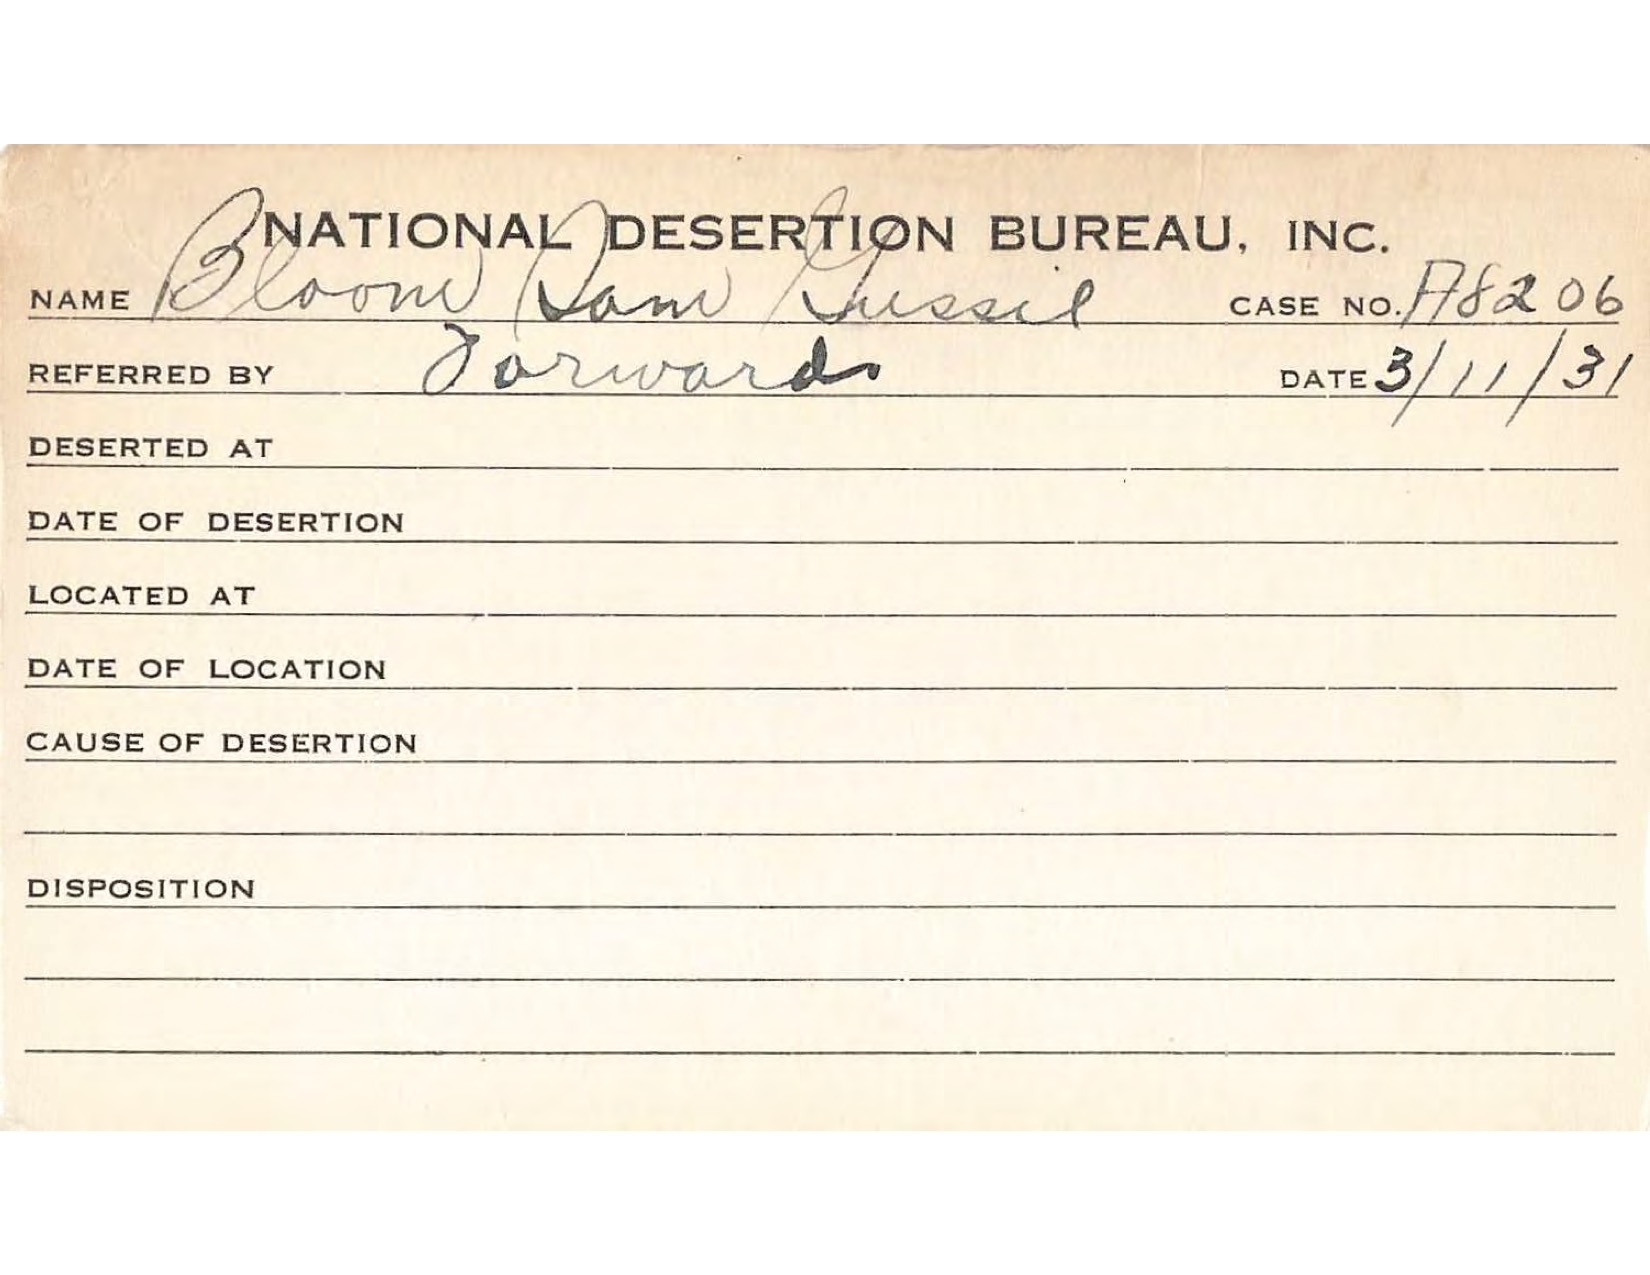 NATIONAL DESERTION BUREAU, INC.
NAME Bloom Sam Gussie CASE NO. A8206
REFERRED BY Forwards DATE 3/11/31
DESERTED AT
DATE OF DESERTION
LOCATED AT
DATE OF LOCATION
CAUSE OF DESERTION
DISPOSITION